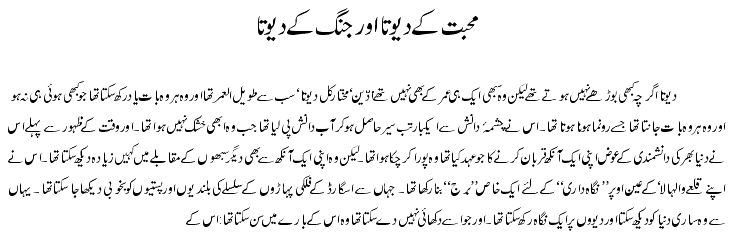 محبت کے دیوتا اور جنگ کے دیوتا
دیوتا اگرچہ کبھی بوڑھے نہیں ہوتے تھے لیکن وہ سبھی ایک ہی عمر کے بھی نہیں تھے اوّین ’مختار کل دیوتا‘ سب سے طویل العمر تھا اور وہ ہر وہ بات یاد رکھ سکتا تھا جو کبھی ہوئی ہی نہ ہو
اور وہ ہر وہ بات جانتا تھا جسے رونما ہونا ہوتا تھا۔ اس نے چشمۂ دانش سے ایکبار تب سیر حاصل ہو کر آب دانش پی لیا تھا جب وہ ابھی خشک نہیں ہوا تھا۔ اور وقت کے ظہور سے پہلے اس
نے دنیا بھر کی دانشمندی کے عوض اپنی ایک آنکھ قربان کرنے کا جو عہد کیا تھا وہ پورا کر چکا ہوا تھا۔ لیکن وہ اپنی ایک آنکھ سے بھی دیگر سبھوں کے مقابلے میں کہیں زیادہ دیکھ سکتا تھا۔ اس نے
اپنے قلعے والہالا کے عین اوپر ”نگاہ داری“ کے لئے ایک خاص ”برج“ بنا رکھا تھا۔ جہاں سے اسگارڈ کے فلکی پہاڑوں کے سلسلے کی بلندیوں اور پستیوں کو بخوبی دیکھا جا سکتا تھا۔ یہاں
سے وہ ساری دنیا کو دیکھ سکتا اور دیووں پر ایک نگاہ رکھ سکتا تھا۔ اور جو اسے دکھائی نہیں دے سکتا تھا وہ اس کے بارے میں سن سکتا تھا: اس کے